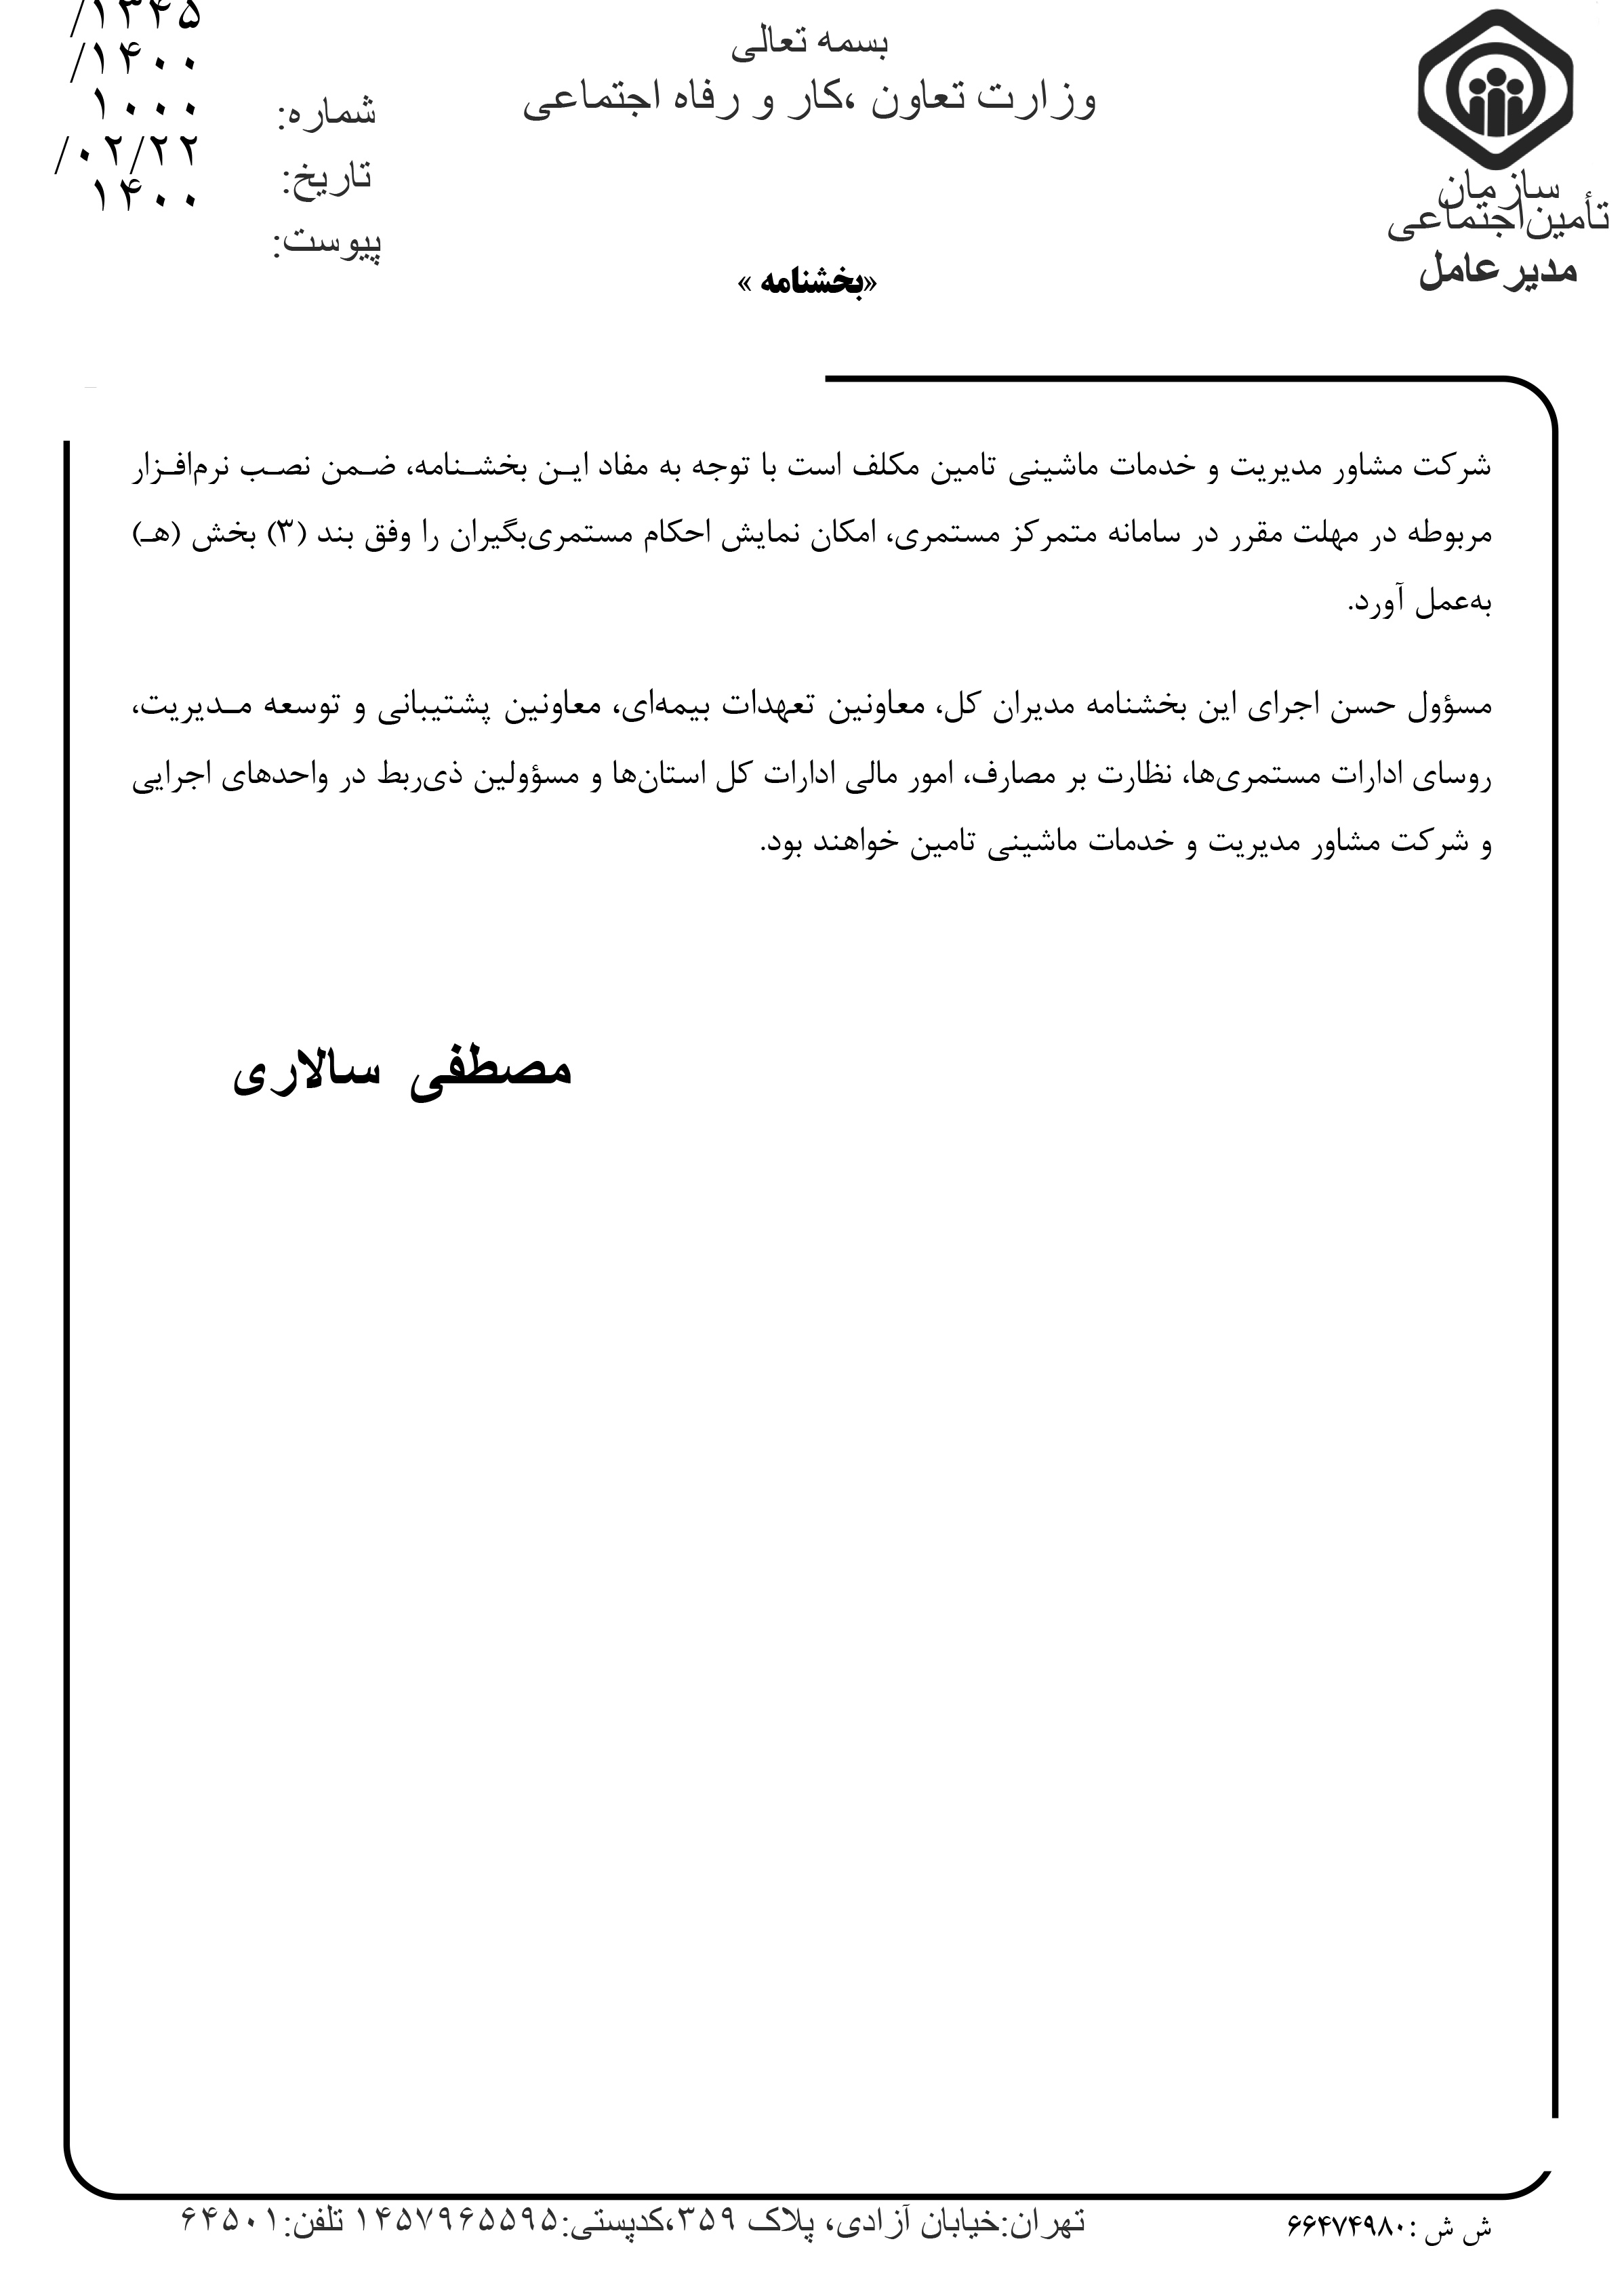 بسمه تعالی
وزارت تعاون ،کار و رفاه اجتماعی
سازمان
تأمین‌اجتماعی
مدیر عامل
شماره:
تاریخ:
پیوست:
/۱۳۴۵
/۱۴۰۰
۱۰۰۰
/۰۲/۲۲
۱۴۰۰
«بخشنامه »
شرکت مشاور مدیریت و خدمات ماشینی تامین مکلف است با توجه به مفاد ایـن بخشـنامه، ضـمن نصـب نرم‌افـزار
مربوطه در مهلت مقرر در سامانه متمرکز مستمری، امکان نمایش احکام مستمری‌بگیران را وفق بند (۳) بخش (هـ)
به‌عمل آورد.
مسؤول حسن اجرای این بخشنامه مدیران کل، معاونین تعهدات بیمه‌ای، معاونین پشتیبانی و توسعه مـدیریت،
روسای ادارات مستمری‌ها، نظارت بر مصارف، امور مالی ادارات کل استان‌ها و مسؤولین ذی‌ربط در واحدهای اجرایی
و شرکت مشاور مدیریت و خدمات ماشینی تامین خواهند بود.
مصطفی سالاری
ش ش :۶۶۴۷۴۹۸۰
تهران:خیابان آزادی، پلاک ۳۵۹،کدپستی:۱۴۵۷۹۶۵۵۹۵ تلفن:۶۴۵۰۱